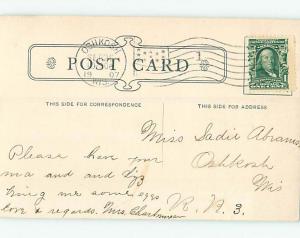 OSHKOSH
1907
WIS.
POST CARD
THIS SIDE FOR CORRESPONDENCE
THIS SIDE FOR ADDRESS
Miss Sadie Abrams
Oshkosh
Wis
R. R. 3.
Please have your
ma and and
bring me some eggs
love & regards. Mrs.